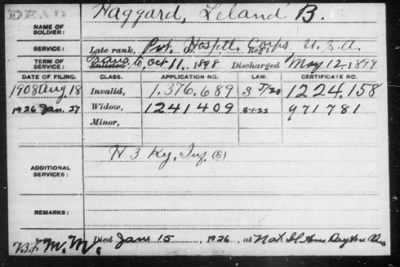 DEAD
NAME OF SOLDIER: Haggard, Leland B.
SERVICE: Late rank, Pvt. Hospttl. Corps U.S.A.
TERM OF SERVICE: Enlisted Oct 11, 1898 Discharged May 12-1899
DATE OF FILING. CLASS. APPLICATION NO. LAW. CERTIFICATE NO.
1908 Aug. 18 Invalid, 1.376.689 1224.158
1926 Jan. 27 Widow, 1241409 971781
Minor,
ADDITIONAL SERVICES: H 3 Ky. Inf.
REMARKS:
Died Jan 15, 1926, at Nat. Dayton